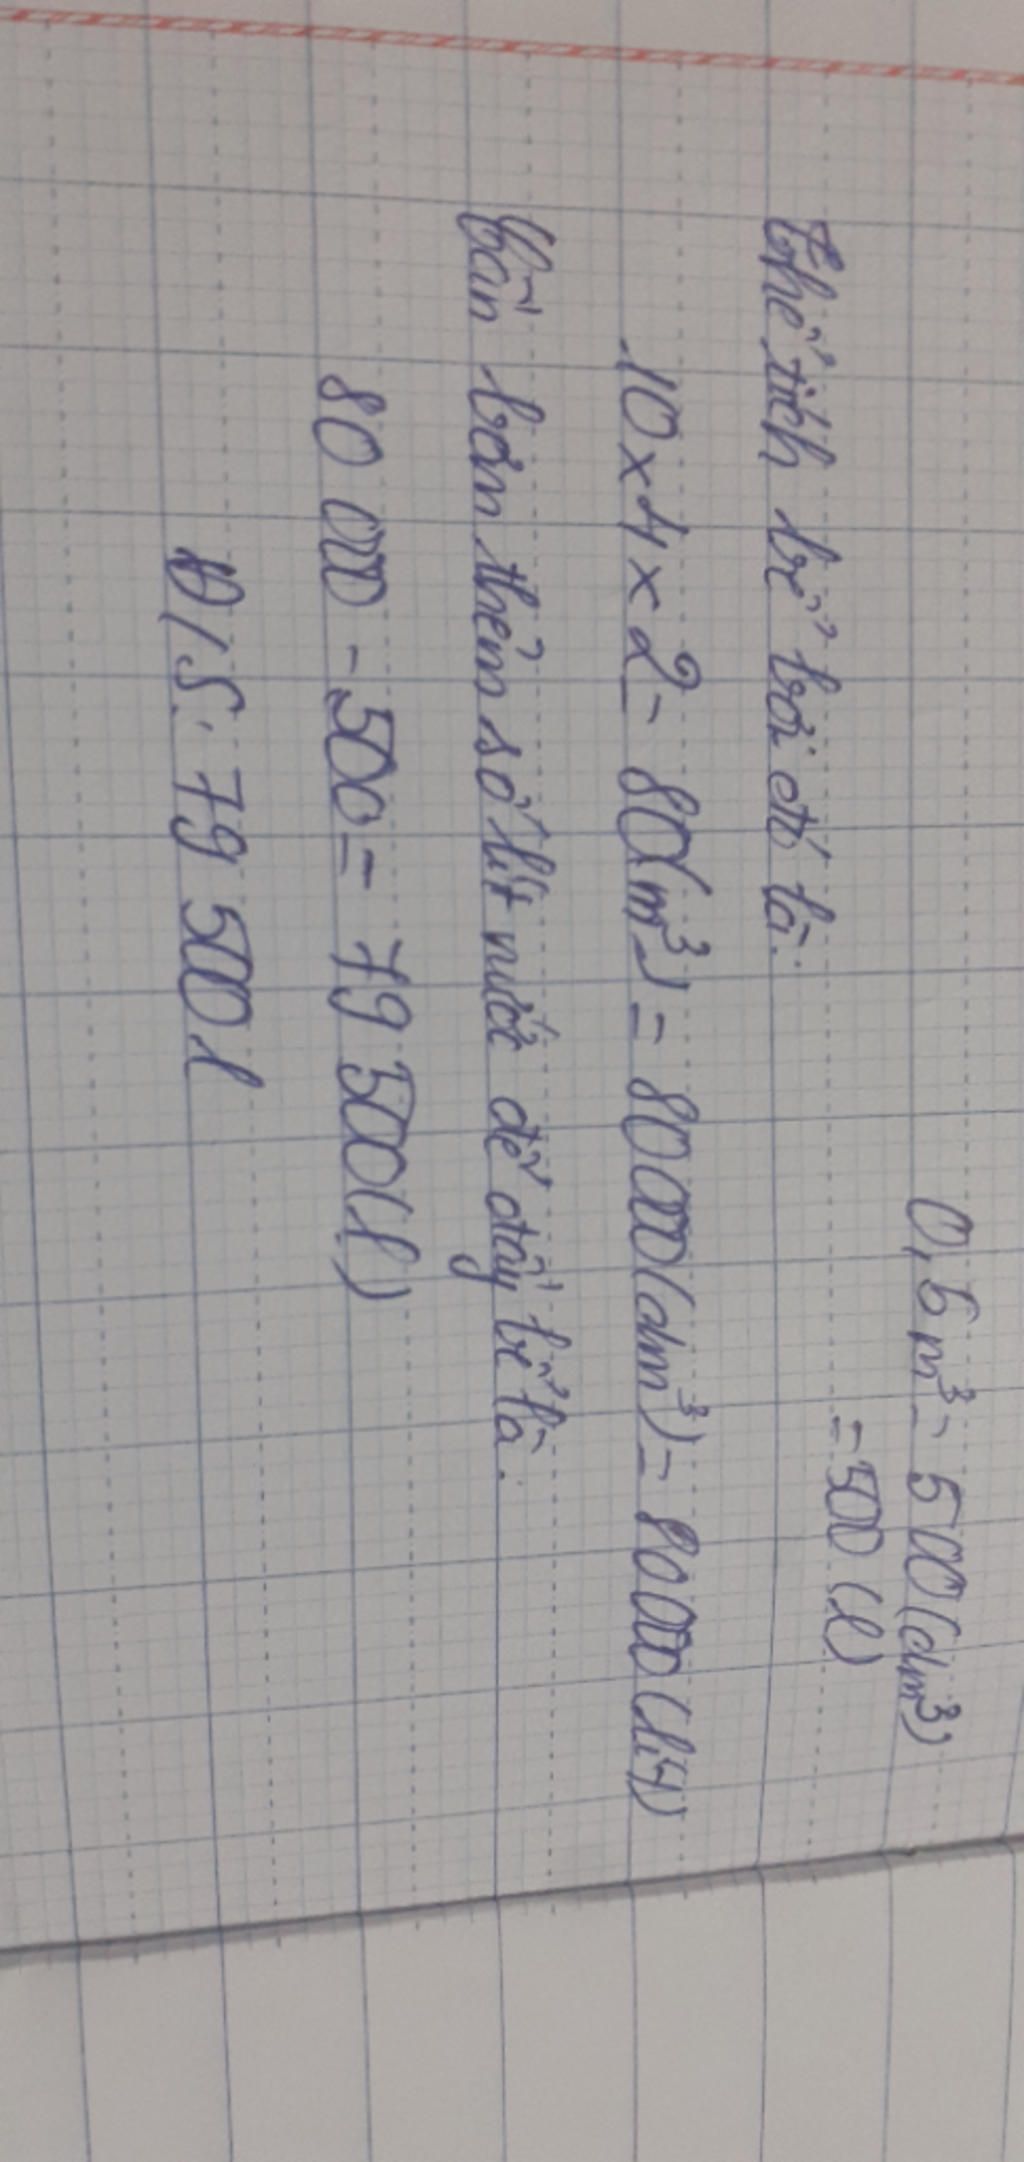 0,5 m³ = 500 (dm³)
= 500 (l)
Thể tích bể bơi đó là:
10 x 4 x 2 = 80 (m³) = 80 000 (dm³) = 80 000 (lít)
Cần bơm thêm số lít nước để đầy bể là:
80 000 - 500 = 79 500 (l)
Đ/S: 79 500 l